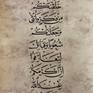 خلقنكم
من ذكر وأنثى
وجعلنكم
شعوبا وقبائل
لتعارفوا
إن أكرمكم
عند الله